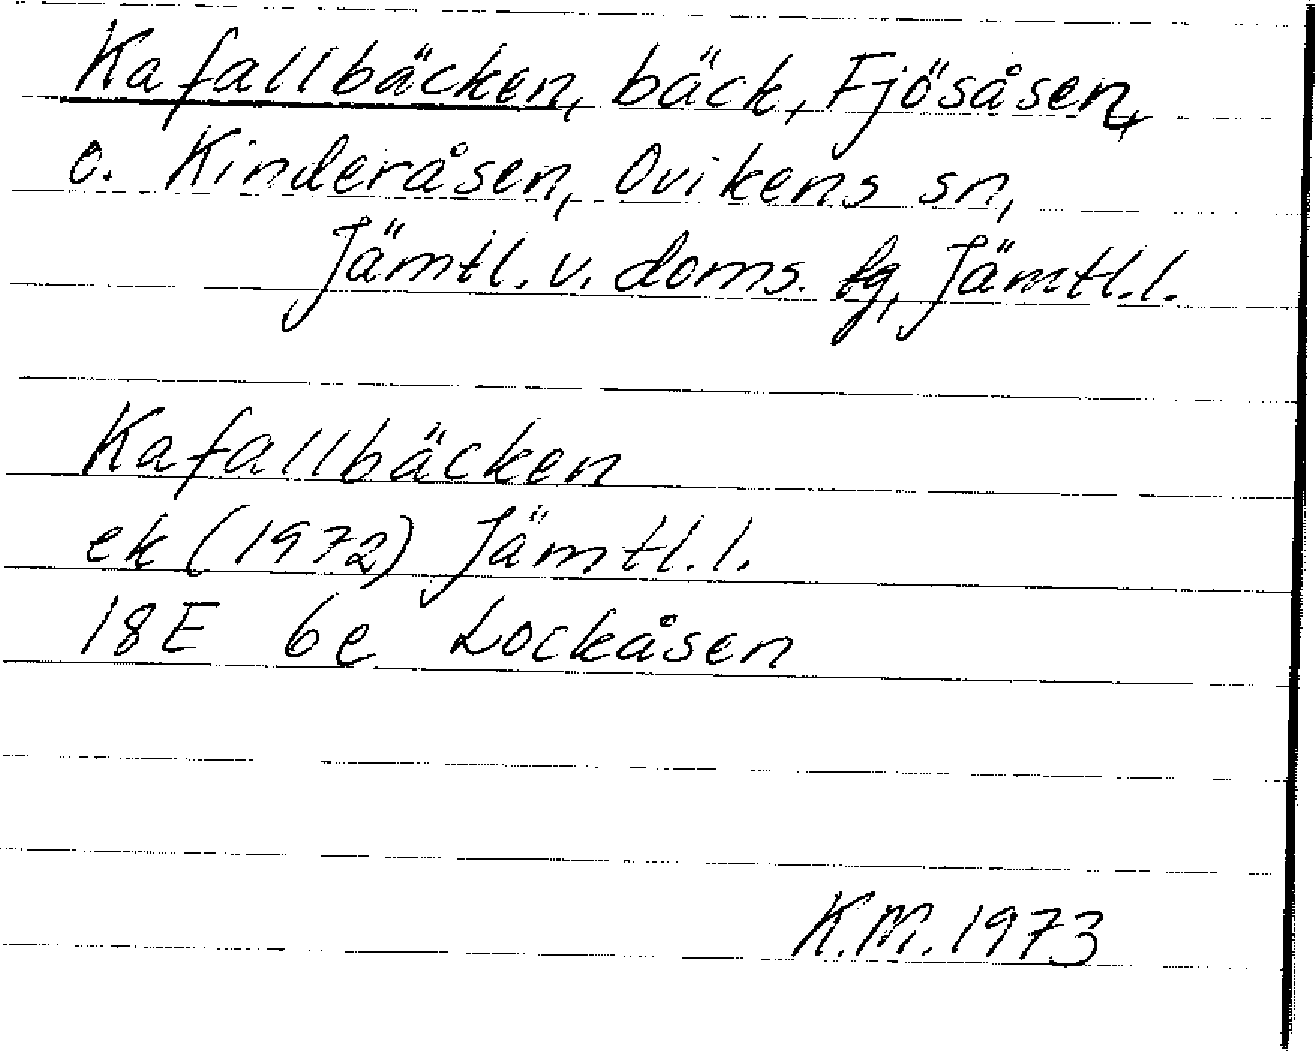 Kafallbäcken, bäck, Fjösåsen,
o. Kinderåsen, Ovikens sn,
Jämtl. v. doms. tg, Jämtl.l.
Kafallbäcken
ek (1972) Jämtl.l.
18E 6e Lockåsen
K.M. 1973